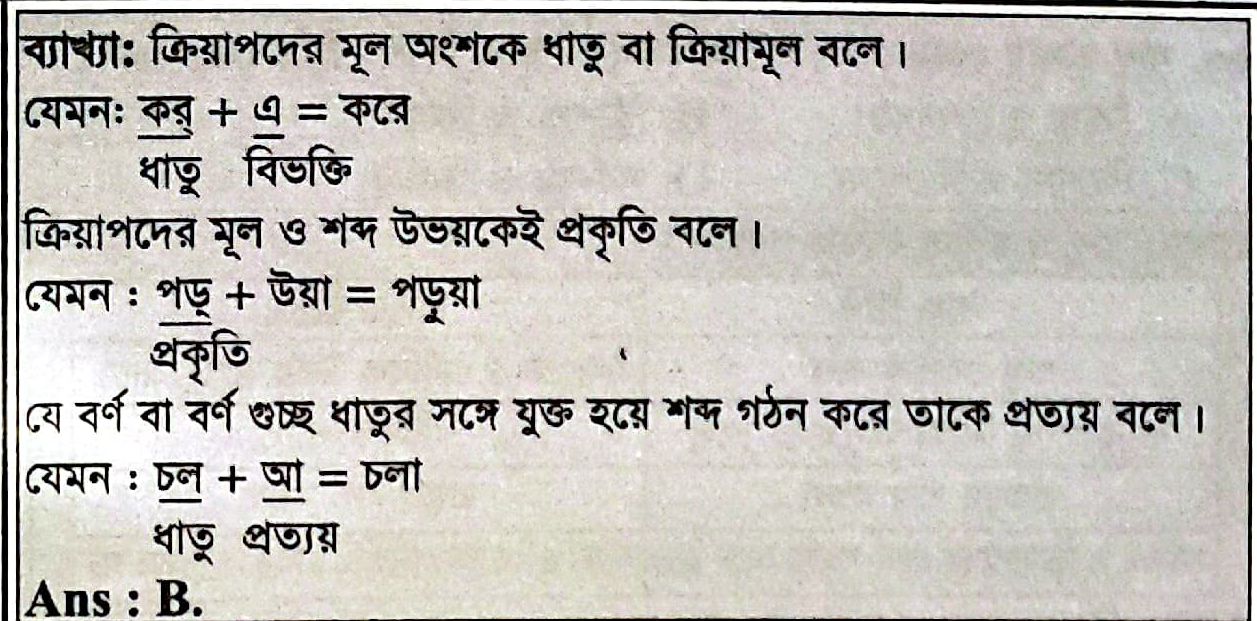 ব্যাখ্যা: ক্রিয়াপদের মূল অংশকে ধাতু বা ক্রিয়ামূল বলে।
যেমনঃ কর্ + এ = করে
ধাতু বিভক্তি
ক্রিয়াপদের মূল ও শব্দ উভয়কেই প্রকৃতি বলে।
যেমন : পড়্ + উয়া = পড়ুয়া
প্রকৃতি
যে বর্ণ বা বর্ণ গুচ্ছ ধাতুর সঙ্গে যুক্ত হয়ে শব্দ গঠন করে তাকে প্রত্যয় বলে।
যেমন : চল + আ = চলা
ধাতু প্রত্যয়
Ans : B.